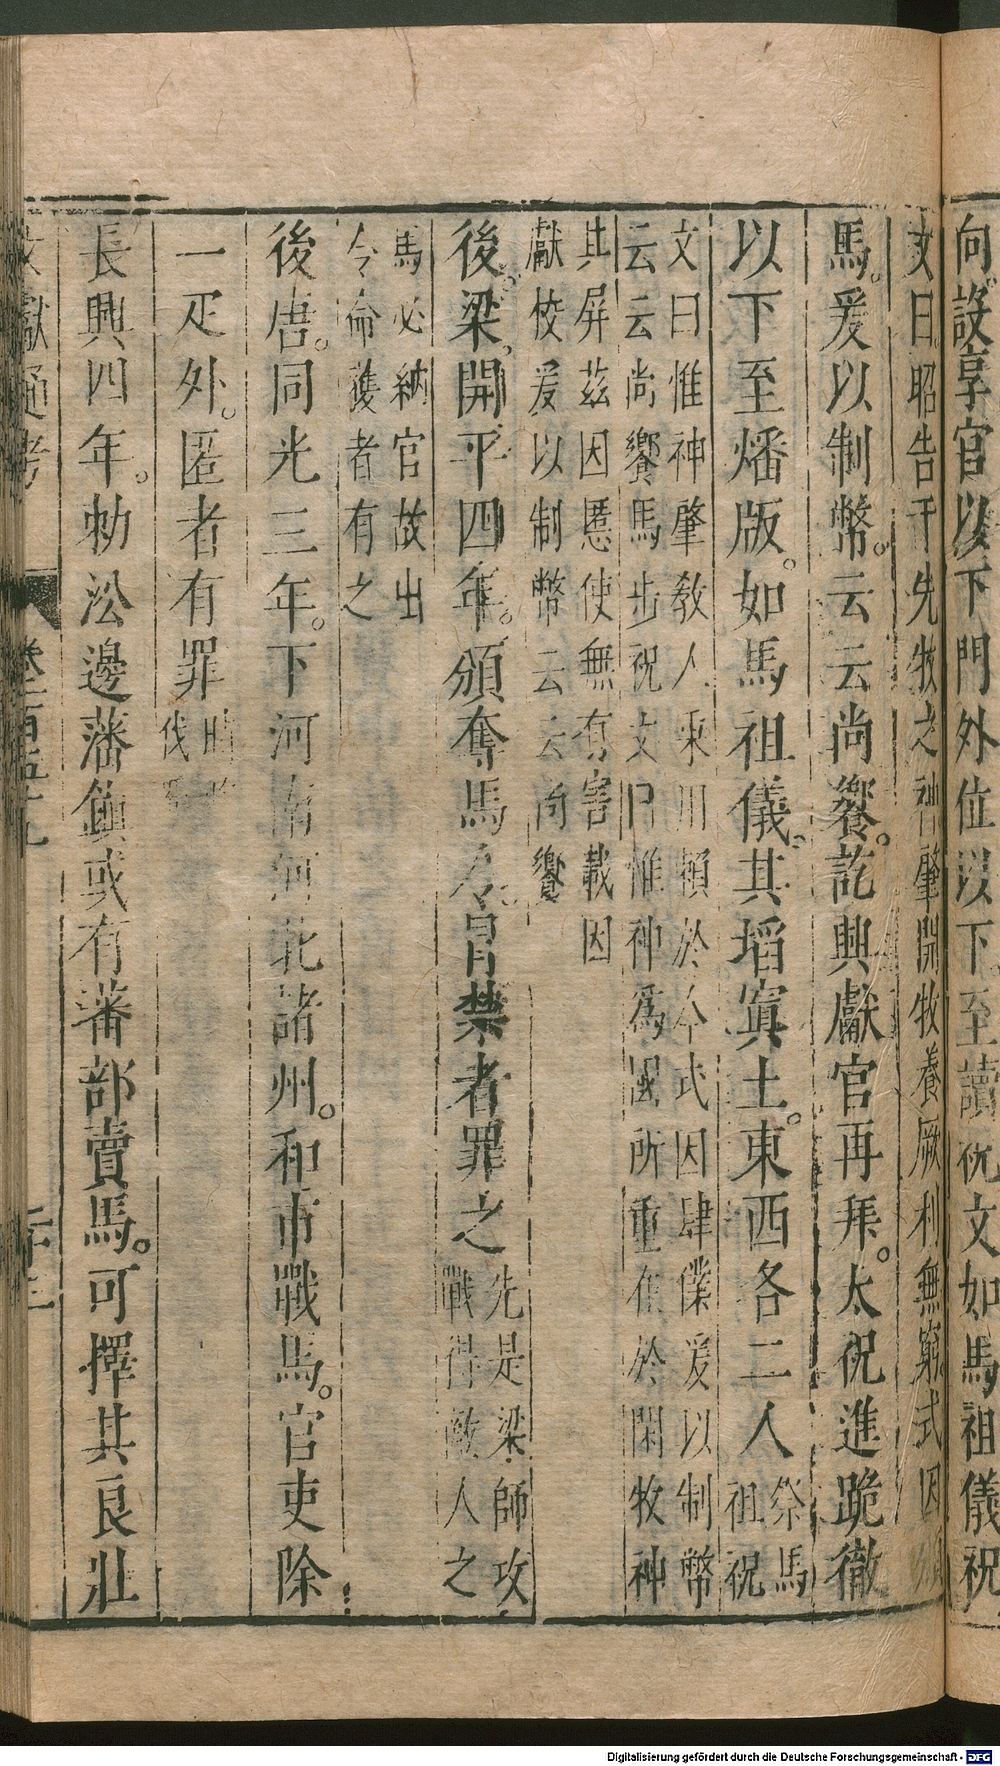 向。設享官以下門外位以下至讀祝文如馬祖儀祝
文曰。昭告于先牧之神肇開牧養厥利無窮式因
馬。爰以制幣。云云尚饗。訖興獻官再拜。太祝進跪徹
以下至燔版。如馬祖儀。其埳窴土。東西各二人祭馬
祖祝
文曰惟神肇教人乘用賴於今式因肆僕爰以制幣
云云尚饗馬步祝文曰惟神為國所重在於閑牧神
其屏茲因慝使無有害載因
獻校爰以制幣云云尚饗
後。梁。開平四年。頒奪馬令。冒禁者罪之先是梁師攻
戰得敵人之
馬必納官故出
令命獲者有之
後唐。同光三年。下河南河北諸州。和市戰馬。官吏除
一疋外。匿者有罪
長興四年。勑沿邊藩鎮或有蕃部賣馬。可擇其良壯
文獻通考
卷一百五十九
Digitalisierung gefördert durch die Deutsche Forschungsgemeinschaft - DFG